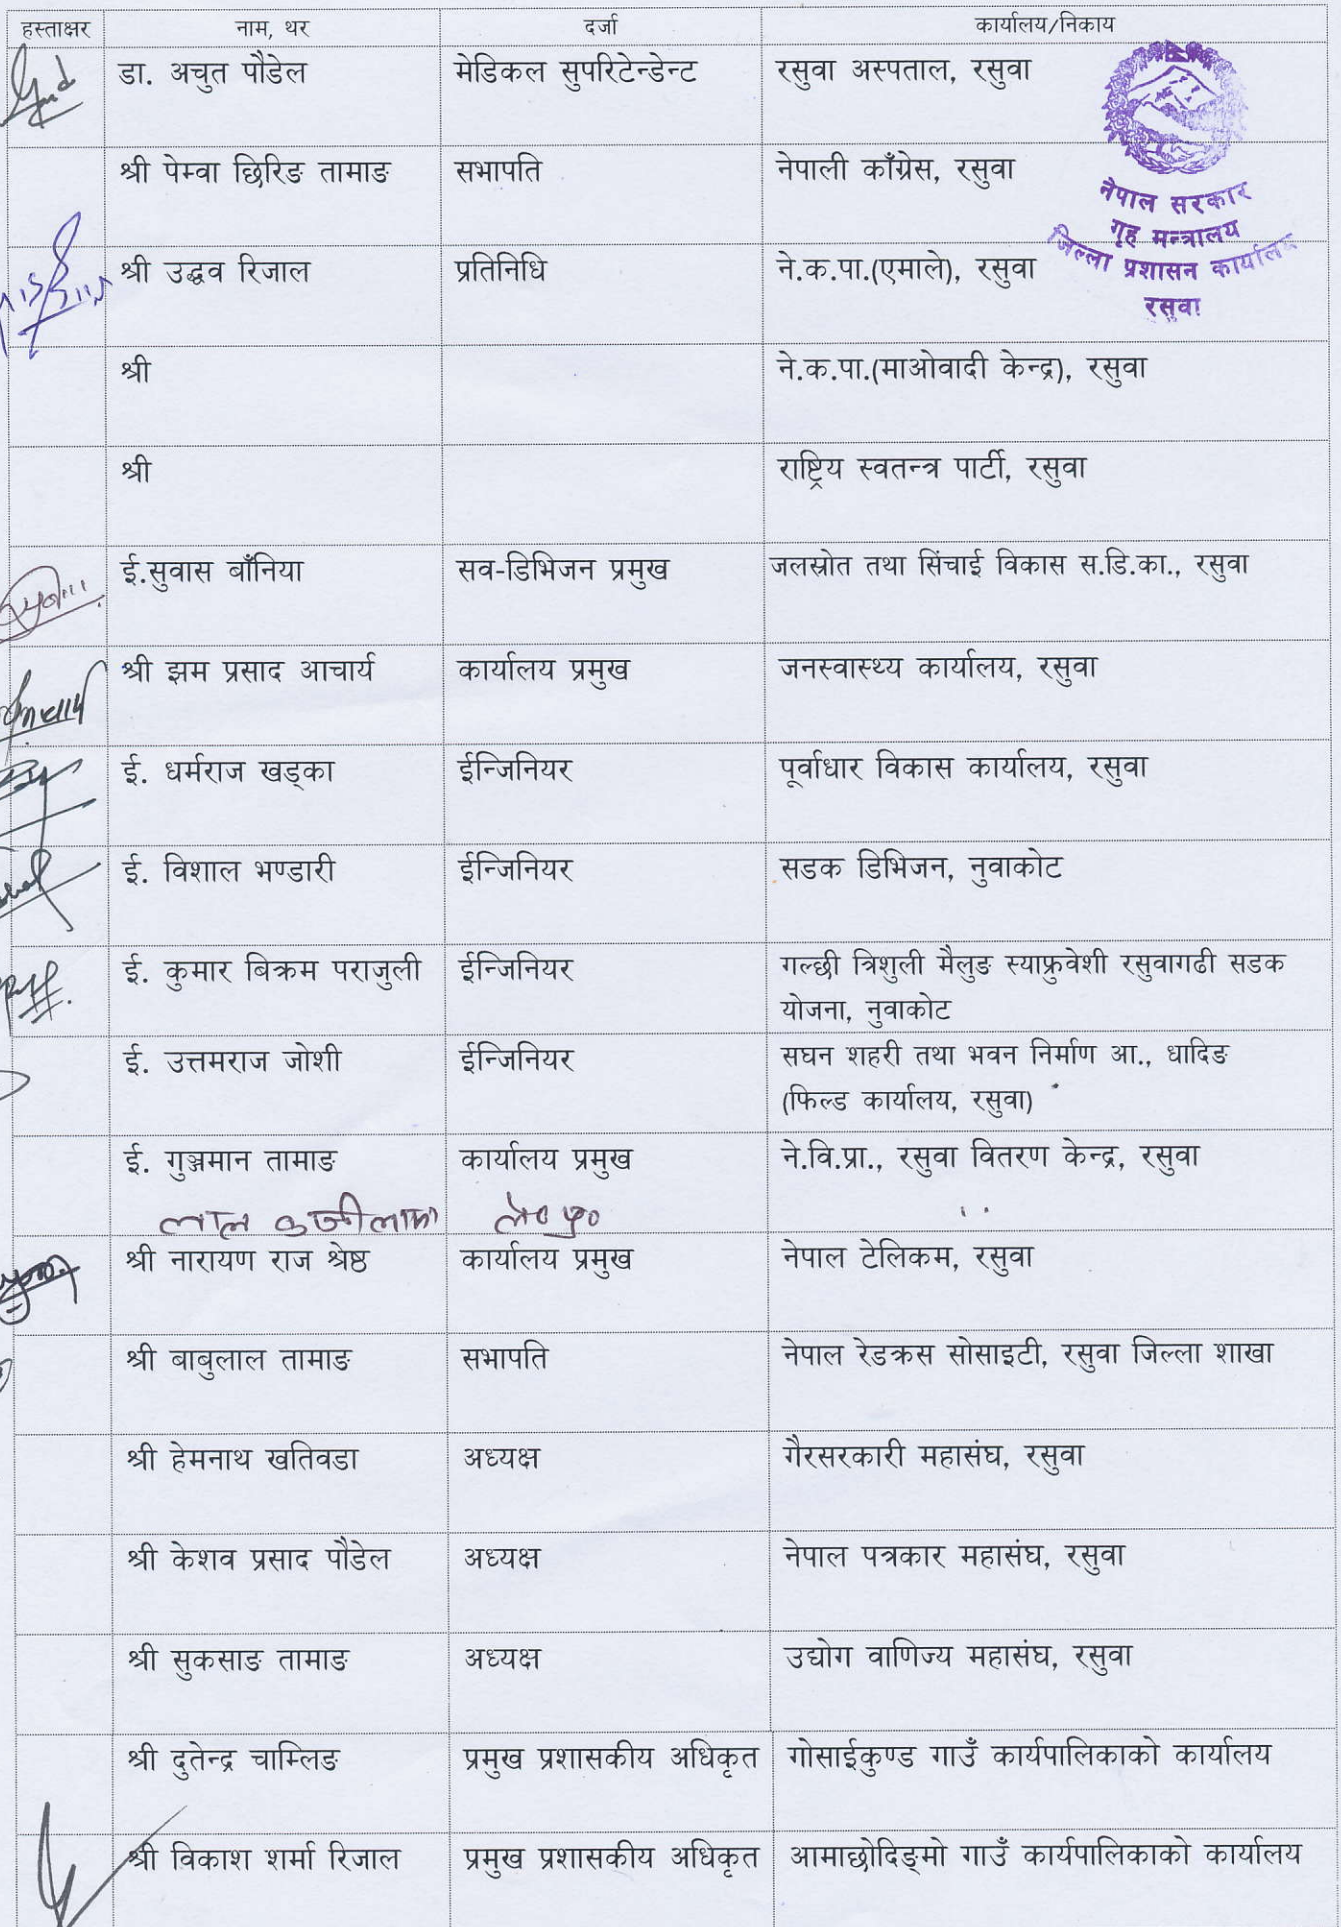 हस्ताक्षर नाम, थर दर्जा कार्यालय/निकाय
डा. अचुत पौडेल मेडिकल सुपरिटेन्डेन्ट रसुवा अस्पताल, रसुवा
श्री पेम्वा छिरिङ तामाङ सभापति नेपाली काँग्रेस, रसुवा
नेपाल सरकार
गृह मन्त्रालय
जिल्ला प्रशासन कार्यालय
रसुवा
श्री उद्धव रिजाल प्रतिनिधि ने.क.पा.(एमाले), रसुवा
श्री ने.क.पा.(माओवादी केन्द्र), रसुवा
श्री राष्ट्रिय स्वतन्त्र पार्टी, रसुवा
ई.सुवास बाँनिया सव-डिभिजन प्रमुख जलस्रोत तथा सिंचाई विकास स.डि.का., रसुवा
श्री झम प्रसाद आचार्य कार्यालय प्रमुख जनस्वास्थ्य कार्यालय, रसुवा
ई. धर्मराज खड्का ईन्जिनियर पूर्वाधार विकास कार्यालय, रसुवा
ई. विशाल भण्डारी ईन्जिनियर सडक डिभिजन, नुवाकोट
ई. कुमार बिक्रम पराजुली ईन्जिनियर गल्छी त्रिशुली मैलुङ स्याफ्रुवेशी रसुवागढी सडक
योजना, नुवाकोट
ई. उत्तमराज जोशी ईन्जिनियर सघन शहरी तथा भवन निर्माण आ., धादिङ
(फिल्ड कार्यालय, रसुवा)
ई. गुञ्जमान तामाङ कार्यालय प्रमुख ने.वि.प्रा., रसुवा वितरण केन्द्र, रसुवा
लाल
श्री नारायण राज श्रेष्ठ कार्यालय प्रमुख नेपाल टेलिकम, रसुवा
श्री बाबुलाल तामाङ सभापति नेपाल रेडक्रस सोसाइटी, रसुवा जिल्ला शाखा
श्री हेमनाथ खतिवडा अध्यक्ष गैरसरकारी महासंघ, रसुवा
श्री केशव प्रसाद पौडेल अध्यक्ष नेपाल पत्रकार महासंघ, रसुवा
श्री सुकसाङ तामाङ अध्यक्ष उद्योग वाणिज्य महासंघ, रसुवा
श्री दुतेन्द्र चाम्लिङ प्रमुख प्रशासकीय अधिकृत गोसाईकुण्ड गाउँ कार्यपालिकाको कार्यालय
श्री विकाश शर्मा रिजाल प्रमुख प्रशासकीय अधिकृत आमाछोदिङ्मो गाउँ कार्यपालिकाको कार्यालय